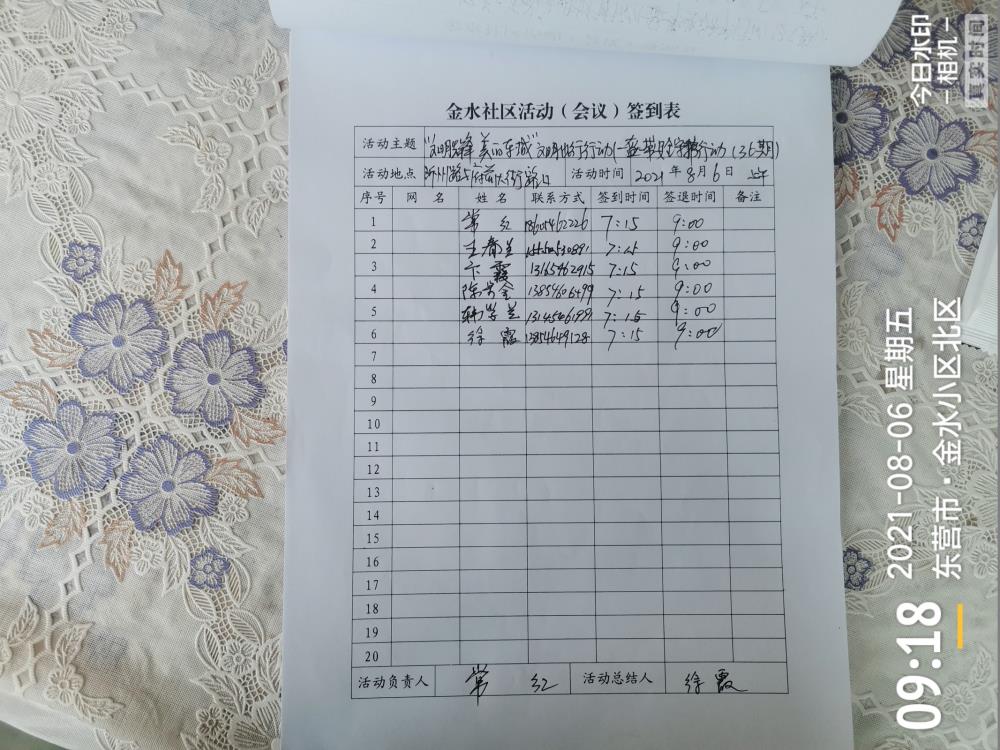 金水社区活动（会议）签到表
活动主题 "文明先锋 美丽东城" 文明出行行动 行动（36期）
活动地点 沂州路与府前大街路口 活动时间 2021 年 8 月 6 日 上午
序号 网 名 姓 名 联系方式 签到时间 签退时间 备注
1 常 红 7:15 9:00
2 王春兰 7:15 9:00
3 霞 13165462915 7:15 9:00
4 陈 13854606499 7:15 9:00
5 7:15 9:00
6 徐 霞 13854649128 7:15 9:00
7
8
9
10
11
12
13
14
15
16
17
18
19
20
活动负责人 常 红 活动总结人 徐霞
今日水印
－相机－
真实时间
09:18
2021-08-06 星期五
东营市·金水小区北区